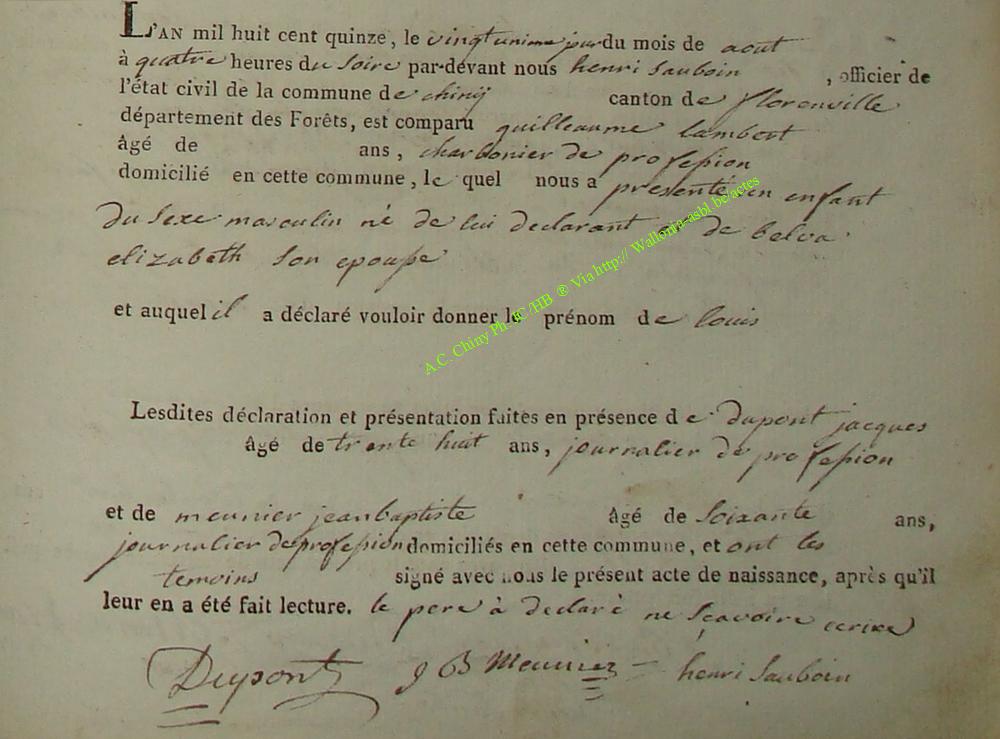 L'AN mil huit cent quinze, le vingt unime jour du mois de aout
à quatre heures du soire par-devant nous henri Sauboin , officier de
l'état civil de la commune de chiny canton de florenville
département des Forêts, est comparu guilleaume lambert
âgé de ans, charbonier de profession
domicilié en cette commune, le quel nous a presenté un enfant
du sexe masculin né de lui declarant et de belva
elizabeth son epouse
et auquel il a déclaré vouloir donner le prénom de louis
Lesdites déclaration et présentation faites en présence de dupont jacques
âgé de trente huit ans, journalier de profession
et de meunier jean baptiste âgé de soixante ans,
journalier de profession domiciliés en cette commune, et ont les
temoins signé avec nous le présent acte de naissance, après qu'il
leur en a été fait lecture. le pere à declaré ne sçavoire ecrire
Dupont J B Meunier henri Sauboin
A.C. Chiny Ph. JC/HB ® Via http:// Wallonia-asbl.be/actes